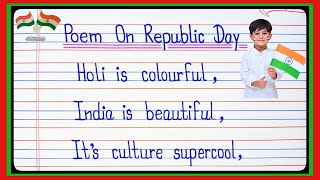 Poem On Republic Day
Holi is colourful,
India is beautiful,
It's culture supercool,